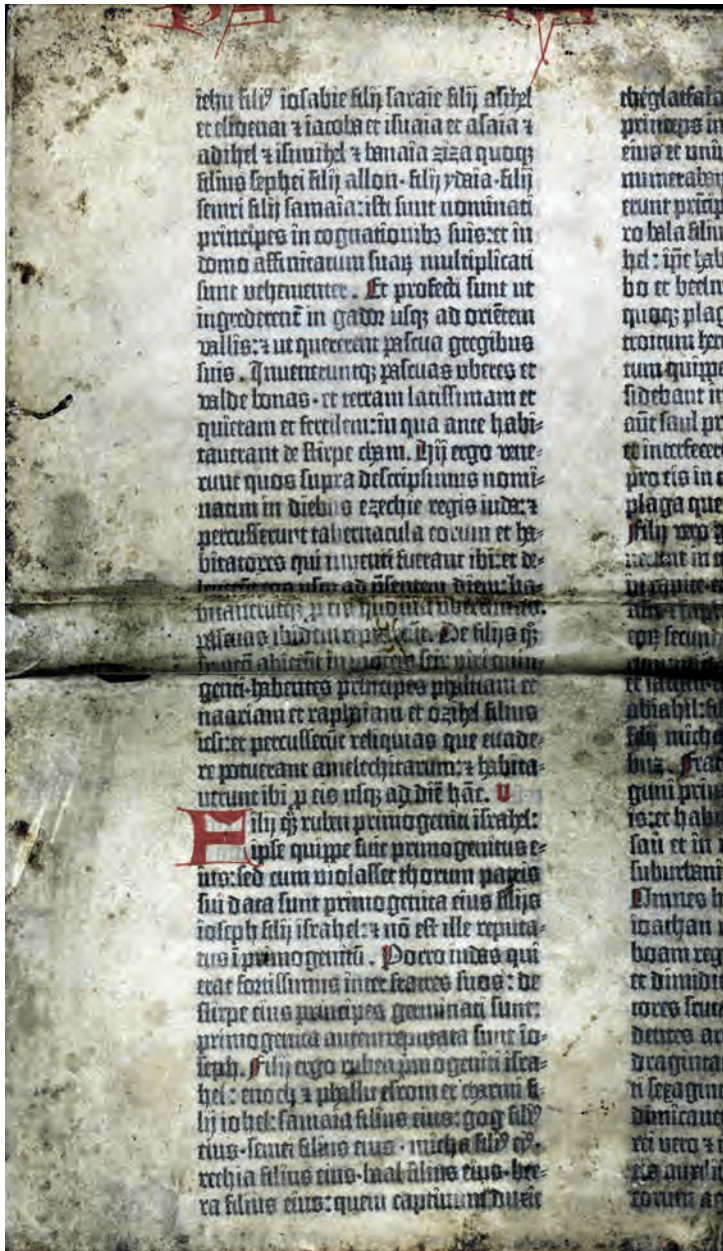 iehu filiꝰ iosabie filij saraie filij asihel
et elioenai ⁊ iacoba et isuaia et asaia ⁊
adihel ⁊ ismihel ⁊ banaia ziza quoqꝫ
filius sephei filij allon·filij ydaia·filij
semri filij samaia:isti sunt nominati
principes in cognationibꝫ suis:et in
domo affinitatum suaꝝ multiplicati
sunt vehementer. Et profecti sunt ut
ingrederent̄ in gador usqꝫ ad oriētem
vallis:⁊ ut quererent pascua gregibus
suis. Inueneruntqꝫ pascuas vberes et
valde bonas·et terram latissimam et
quietam et fertilem:in qua ante habi-
tauerant de stirpe cham. Hij ergo vene-
runt quos supra descripsimus nomi-
natim in diebus ezechie regis iuda:⁊
percusserunt tabernacula eorum et ha-
bitatores qui inuenti fuerant ibi:et de-
usqꝫ ad p̄sentem diem:ha-
bitaueruntqꝫ ꝓ eis
pascuas ibidem De filijs qꝫ
abierūt in
genti·habentes principes phaltiam et
naariam et raphaiam et ozihel filius
iesi:et percusserūt reliquias que euade-
re potuerant amalechitarum:⁊ habita-
uerunt ibi ꝓ eis usqꝫ ad diē hāc. V
Filij qꝫ ruben primogeniti israhel:
ipse quippe fuit primogenitus e-
ius:sed cum violasset thorum patris
sui data sunt primogenita eius filijs
ioseph filij israhel:⁊ nō est ille reputa-
tus ī primogenitū. Porro iudas qui
erat fortissimus inter fratres suos: de
stirpe eius principes germinati sunt:
primogenita autem reputata sunt io-
seph. Filij ergo ruben pmogeniti isra-
hel: enoch ⁊ phallu esrom et charmi fi-
lij iohel:samaia filius eius:gog filiꝰ
eius·semei filius eius·micha filiꝰ eiꝰ·
rechia filius eius·baal filius eius·bee-
ra filius eius:quem captiuum duxit
theglatfala
princeps in
eius et uni
numeraban
erunt prīcip
ro bala filiu
hel: ip̄e hab
bo et beelm
quoqꝫ plag
tum quippe
sidebant in
aūt saul pr
et interfecer
pro eis in
plaga que
Filij vero g
in capite
abiahil:fi
filij micha
buz. Frat
guni prin
is:et habi
san et in
suburbani
Omnes h
ioathan
boam reg
et dimidi
tores scut
dentes ar
draginta
ti sexagin
dimicaue
rei vero ⁊
eis auxili